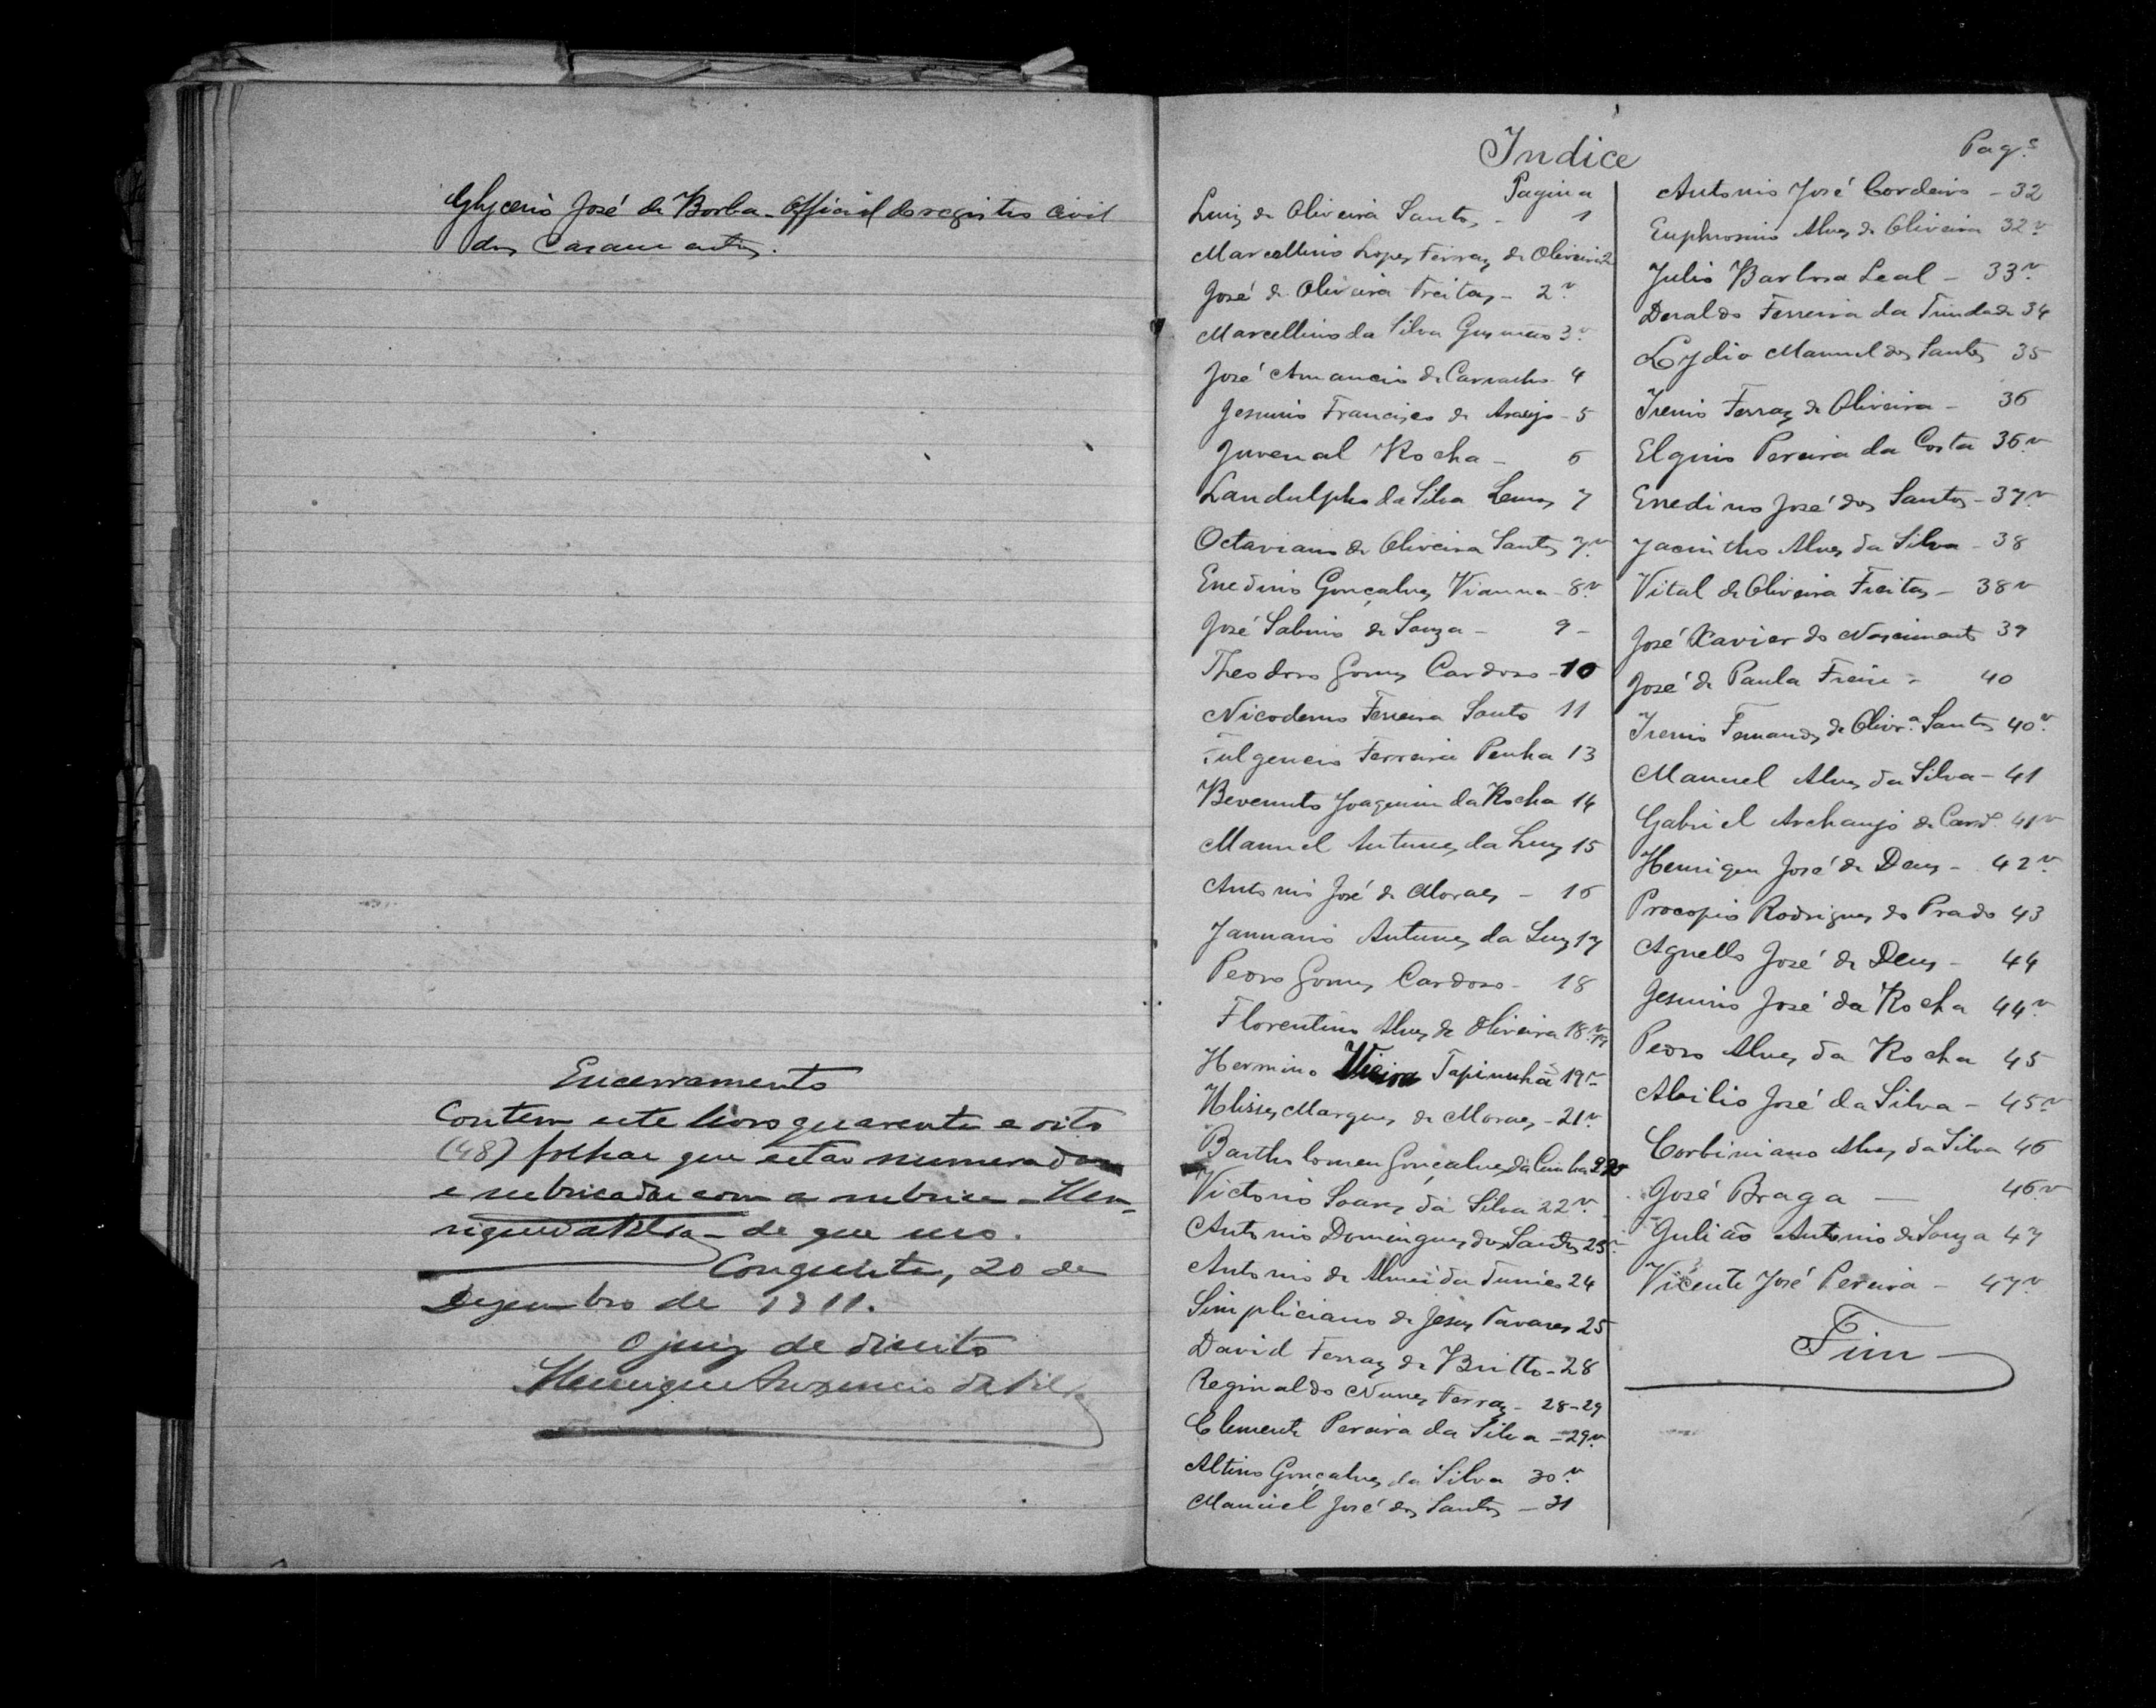 Glycerio José de Borba - Official do registro civil
dos Casamentos.
Encerramento
Contem este livro quarenta e oito
(48) folhas que estão numeradas
e rubricadas com a rubrica - Hen-
rique da Silva - de que uso.
Conquista, 20 de
Dezembro de 1911.
O juiz de direito
Henrique da Silva
Indice
Pagina
Luiz de Oliveira Santos - 1
Marcellino Lopes Ferraz de Oliveira 2
José de Oliveira Freitas - 2v.
Marcellino da Silva Gusmão 3v.
José Amancio de Carvalho - 4
Jesuino Francisco de Araujo - 5
Juvenal Rocha - 6
Landulpho da Silva Lemos 7
Octaviano de Oliveira Santos 7v.
Enedino Gonçalves Vianna - 8v.
José Sabino de Souza - 9 -
Theodoro Gomes Cardoso - 10
Nicodemo Ferreira Santo 11
Fulgencio Ferreira Penha 13
Bevenuto Joaquim da Rocha 14
Manuel Antunes da Luz 15
Antonio José de Moraes - 16
Januario Antunes da Luz 17
Pedro Gomes Cardoso - 18
Florentino Alves de Oliveira 18v. 19
Hermino Vieira Tapinuhã 19v.
Ulisses Marques de Moraes - 21v.
Bartholomeu Gonçalves da Cunha
Victorio Soares da Silva 22v.
Antonio Domingues dos Santos 23v.
Antonio de Almeida Tunico 24
Simpliciano de Jesus Tavares 25
David Ferraz de Britto - 28
Reginaldo Nunes Ferraz - 28-29
Clemente Pereira da Silva - 29v.
Altino Gonçalves da Silva 30v.
Manuel José dos Santos - 31
Pag.s
Antonio José Cordeiro - 32
Euphrosino Alves de Oliveira 32v.
Julio Barbosa Leal - 33v.
Deraldo Ferreira da Trindade 34
Lydio Manuel dos Santos 35
Irenio Ferraz de Oliveira - 36
Elgino Pereira da Costa 36v.
Enedino José dos Santos - 37v.
Jacintho Alves da Silva - 38
Vital de Oliveira Freitas - 38v
José Xavier do Nascimento 39
José de Paula Freire - 40
Irenio Fernandes de Olivr.a Santos 40v.
Manuel Alves da Silva - 41
Gabriel Archanjo de 41v
Henrique José de Deus - 42v.
Procopio Rodrigues do Prado 43
Agnello José de Deus - 44
Jesuino José da Rocha 44v.
Pedro Alves da Rocha 45
Abilio José da Silva - 45v.
Corbiniano Alves da Silva 46
José Braga - 46v
Julião Antonio de Souza 47
Vicente José Pereira - 47v.
Fim